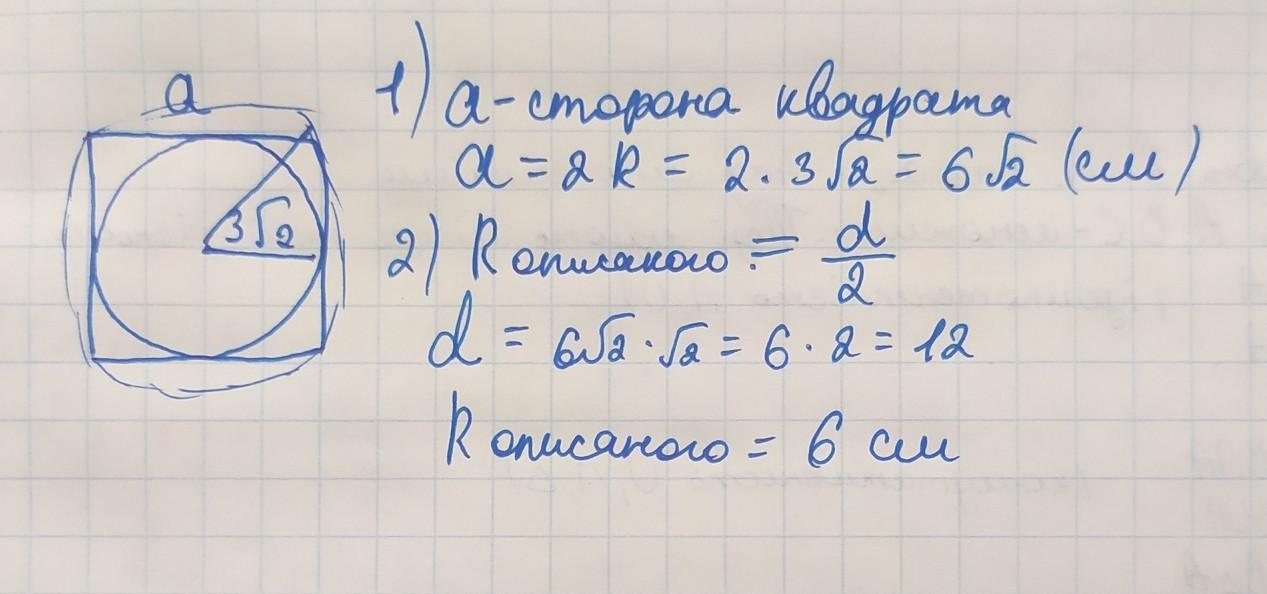 a
3√2
1) a - сторона квадрата
a = 2R = 2 · 3√2 = 6√2 (см)
2) R описаного = d/2
d = 6√2 · √2 = 6 · 2 = 12
R описаного = 6 см